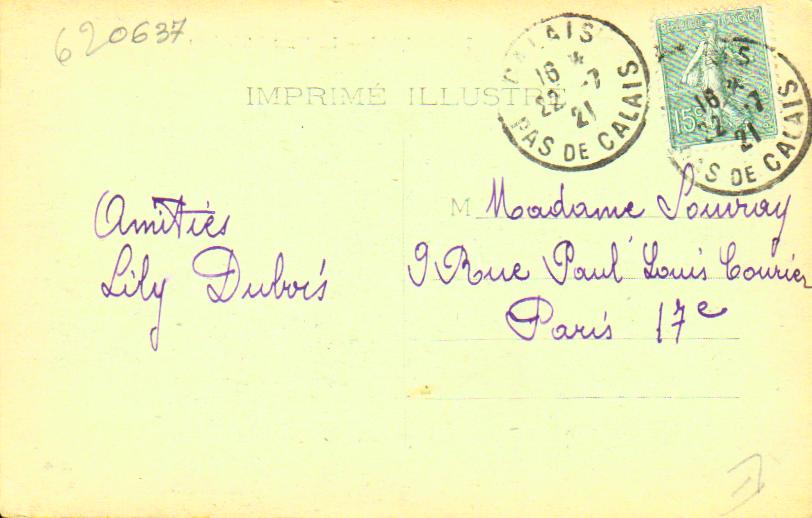 620637
IMPRIMÉ ILLUSTRÉ
CALAIS
16 *
22 -7
21
PAS DE CALAIS
REPUBLIQUE FRANÇAISE
15c
16 *
22 -7
21
S DE CALAIS
Amitiés
Lily Dubois
M Madame Souvray
9 Rue Paul Louis Courier
Paris 17e